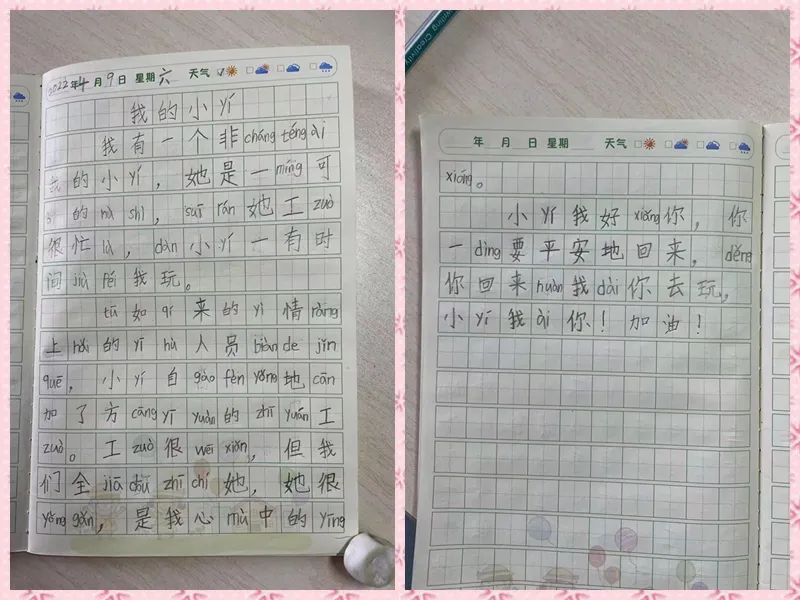 2022年4月9日 星期六 天气
我的小yí
我有一个非cháng téng ài
我的小yí，她是一míng可
的hù shì，suī rán她工zuò
很忙lù，dàn小yí一有时
间jiù péi我玩。
tū如qí来的yì情ràng
上hǎi的yī hù人员biàn de jǐn
quē，小yí自gào fèn yǒng地cān
加了方cāng yī yuàn的zhī yuán工
zuò。工zuò很wēi xiǎn，但我
们全jiā dōu zhī chí她，她很
yǒng gǎn，是我心mù中的yīng
年 月 日 星期 天气
xióng。
小yí我好xiǎng你，你
一dìng要平安地回来，děng
你回来huàn我dài你去玩，
小yí我ài你！加油！